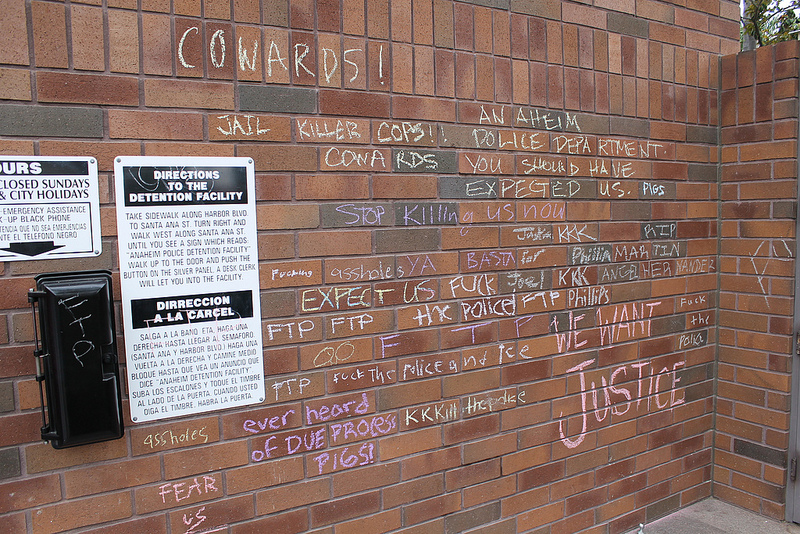 COWARDS!
JAIL KILLER COPS!!
COWARDS
ANAHEIM
POLICE DEPARTMENT.
YOU SHOULD HAVE
EXPECTED US. PIGS
STOP Killing us now
Justin KKK RIP
Fucking assholes YA BASTA for Phillip MARTIN
EXPECT US FUCK Joel KKK ANGEL HERNANDEZ
FTP FTP the Police FTP Phillips
FTP
WE WANT
JUSTICE
Fuck
the
Police
FTP fuck The Police and Ice
ever heard
of DUE PROCESS
PIGS!
KKKill the police
assholes
FEAR
US
FTP
OURS
CLOSED SUNDAYS
& CITY HOLIDAYS
EMERGENCY ASSISTANCE
K-UP BLACK PHONE
TENCIA QUE NO SEA EMERJENCIAS
NTE EL TELEFONO NEGRO
DIRECTIONS
TO THE
DETENTION FACILITY
TAKE SIDEWALK ALONG HARBOR BLVD.
TO SANTA ANA ST. TURN RIGHT AND
WALK WEST ALONG SANTA ANA ST.
UNTIL YOU SEE A SIGN WHICH READS:
"ANAHEIM POLICE DETENTION FACILITY"
WALK UP TO THE DOOR AND PUSH THE
BUTTON ON THE SILVER PANEL, A DESK CLERK
WILL LET YOU INTO THE FACILITY.
DIRRECCION
A LA CARCEL
SALGA A LA BANQ. ETA, HAGA UNA
DERECHA HASTA LLEGAR AL SEMAFORO.
(SANTA ANA Y HARBOR BLVD.) HAGA UNA
VUELTA A LA DERECHA Y CAMINE MEDIO
BLOQUE HASTA QUE VEA UN ANUNCIO QUE
DICE "ANAHEIM DETENTION FACILITY."
SUBA LOS ESCALONES Y TOQUE EL TIMBRE
AL LADO DE LA PUERTA. CUANDO USTED
OIGA EL TIMBRE, HABRA LA PUERTA